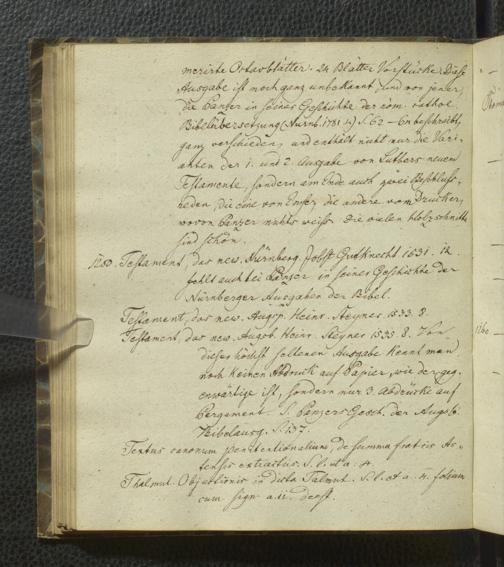 merirte Octavblätter. 24 Blätter Vorstücke. Diese
Ausgabe ist noch ganz unbekannt, und von jener,
die Panzer in seiner Geschichte der röm. cathol.
Bibelübersetzung (Nürnb. 1781. 4) S. 62 - beschreibt,
ganz verschieden, und enthält nicht nur die Vari-
anten der 1. und 2. Ausgabe von Luthers neuen
Testamente, sondern am Ende auch zwei Beschluß-
reden, die eine von Emser, die andere vom Drucker,
wovon Panzer nichts weiß. Die vielen Holzschnitte
sind schön.
1250. Testament, das new. Nürnberg. Jobst Gutknecht 1531. 12.
fehlt auch bei Panzer in seiner Geschichte der
Nürnberger Ausgaben der Bibel.
Testament, das new. Augsp. Heinr. Steyner. 1533. 8.
Testament, das new. Augsb. Heinr. Steyner 1535. 8. Von
dieser höchst seltenen Ausgabe kennt man
noch keinen Abdruck auf Papier, wie der geg-
enwärtige ist, sondern nur 3. Abdrücke auf
Pergament. S. Panzers Gesch. der Augsb.
Bibelausg. S. 137.
Textus canonum penitentionalium, de summa fratris As-
tensis extractus. S. l. et a. 4.
Thalmut. Objectiones in dicta Talmut. S. l. et a. 4. foliorum
cum sign. a. ii. dersf.